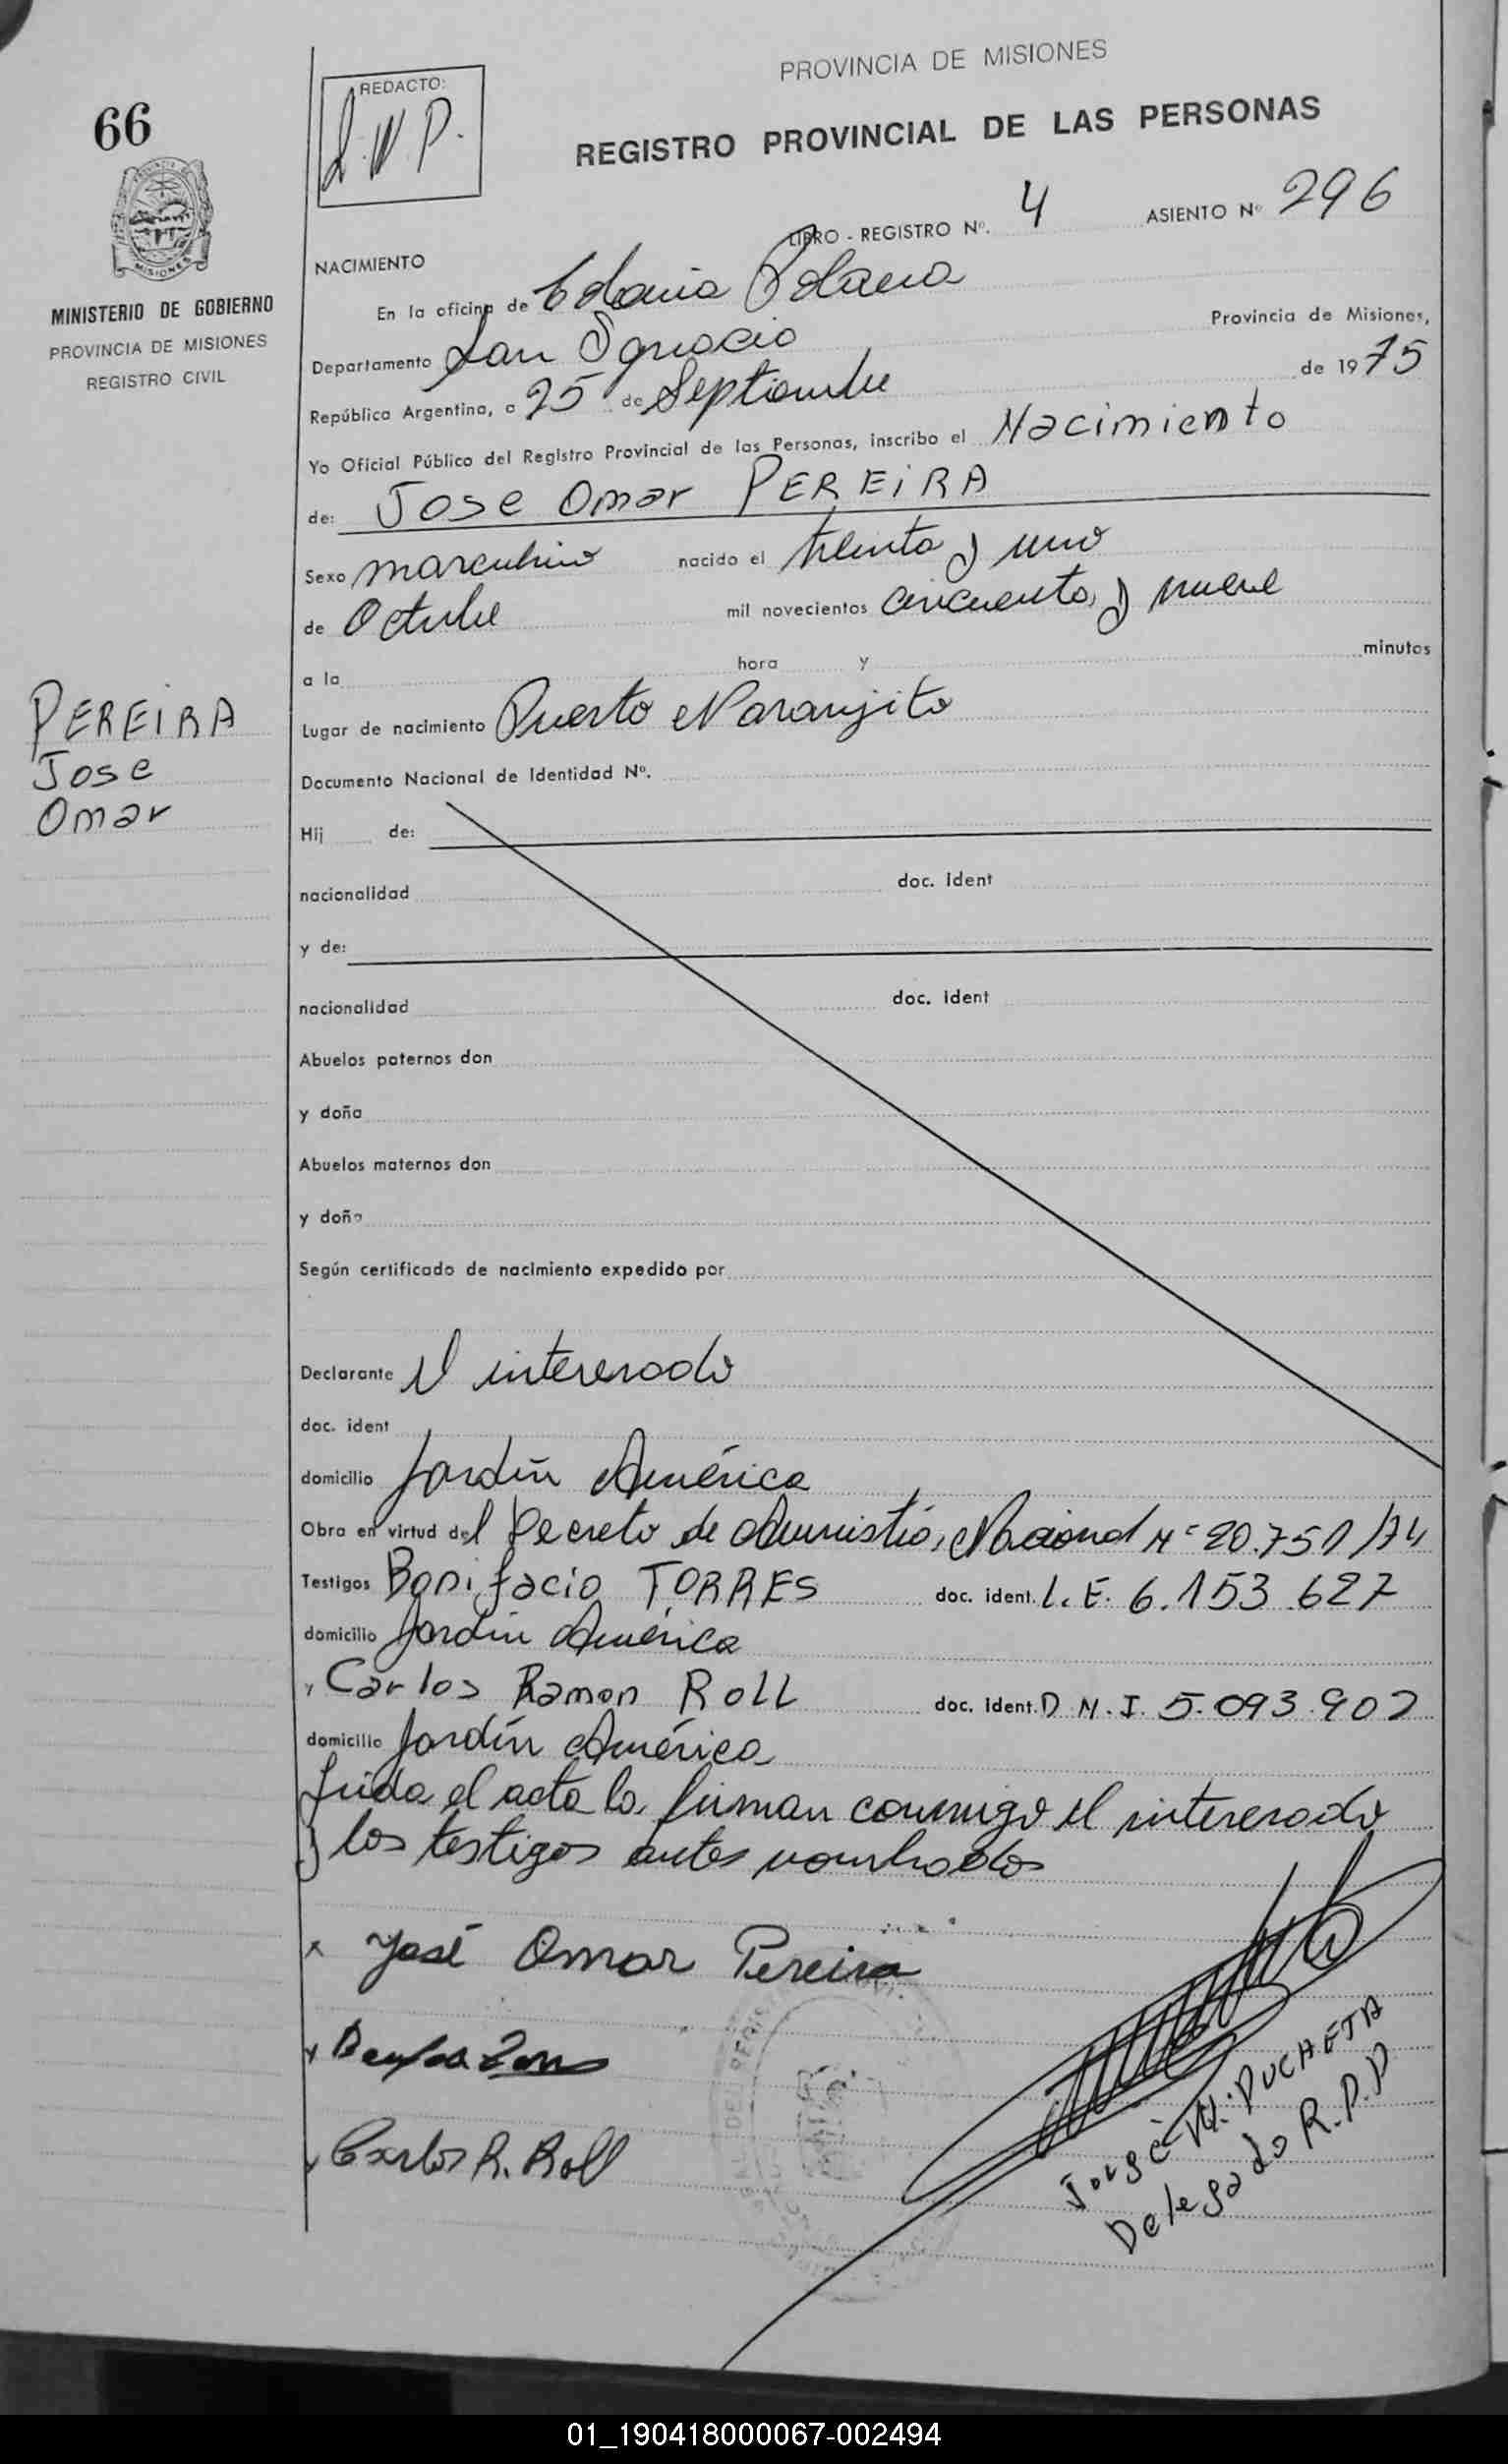 66
REDACTO:
PROVINCIA DE MISIONES
REGISTRO PROVINCIAL DE LAS PERSONAS
LIBRO - REGISTRO Nº. 4 ASIENTO Nº 296
MISIONES
MINISTERIO DE GOBIERNO
PROVINCIA DE MISIONES
REGISTRO CIVIL
NACIMIENTO
En la oficina de Colonia Polana
Departamento San Ignacio Provincia de Misiones,
República Argentina, a 25 de Septiembre de 1975
Yo Oficial Público del Registro Provincial de las Personas, inscribo el Nacimiento
de: Jose Omar PEREIRA
Sexo masculino nacido el treinta y uno
de Octubre mil novecientos cincuenta y nueve
a la hora y minutos
PEREIRA
Jose
Omar
Lugar de nacimiento Puerto Naranjito
Documento Nacional de Identidad Nº.
Hij de:
nacionalidad doc. ident
y de:
nacionalidad doc. ident
Abuelos paternos don
y doña
Abuelos maternos don
y doña
Según certificado de nacimiento expedido por
Declarante El interesado
doc. ident
domicilio Jardín América
Obra en virtud del Decreto de Nacional Nº 20.751/74
Testigos Bonifacio TORRES doc. ident. L. E. 6.153.627
domicilio Jardín América
y Carlos Ramon ROLL doc. ident. D.N.I. 5.093.902
domicilio Jardín América
Leida el acta la firman conmigo el interesado
y los testigos antes nombrados
x José Omar Pereira
x
x Carlos R. Roll
Jorge W. DUCHETA
Delegado R.P.P
01_190418000067-002494